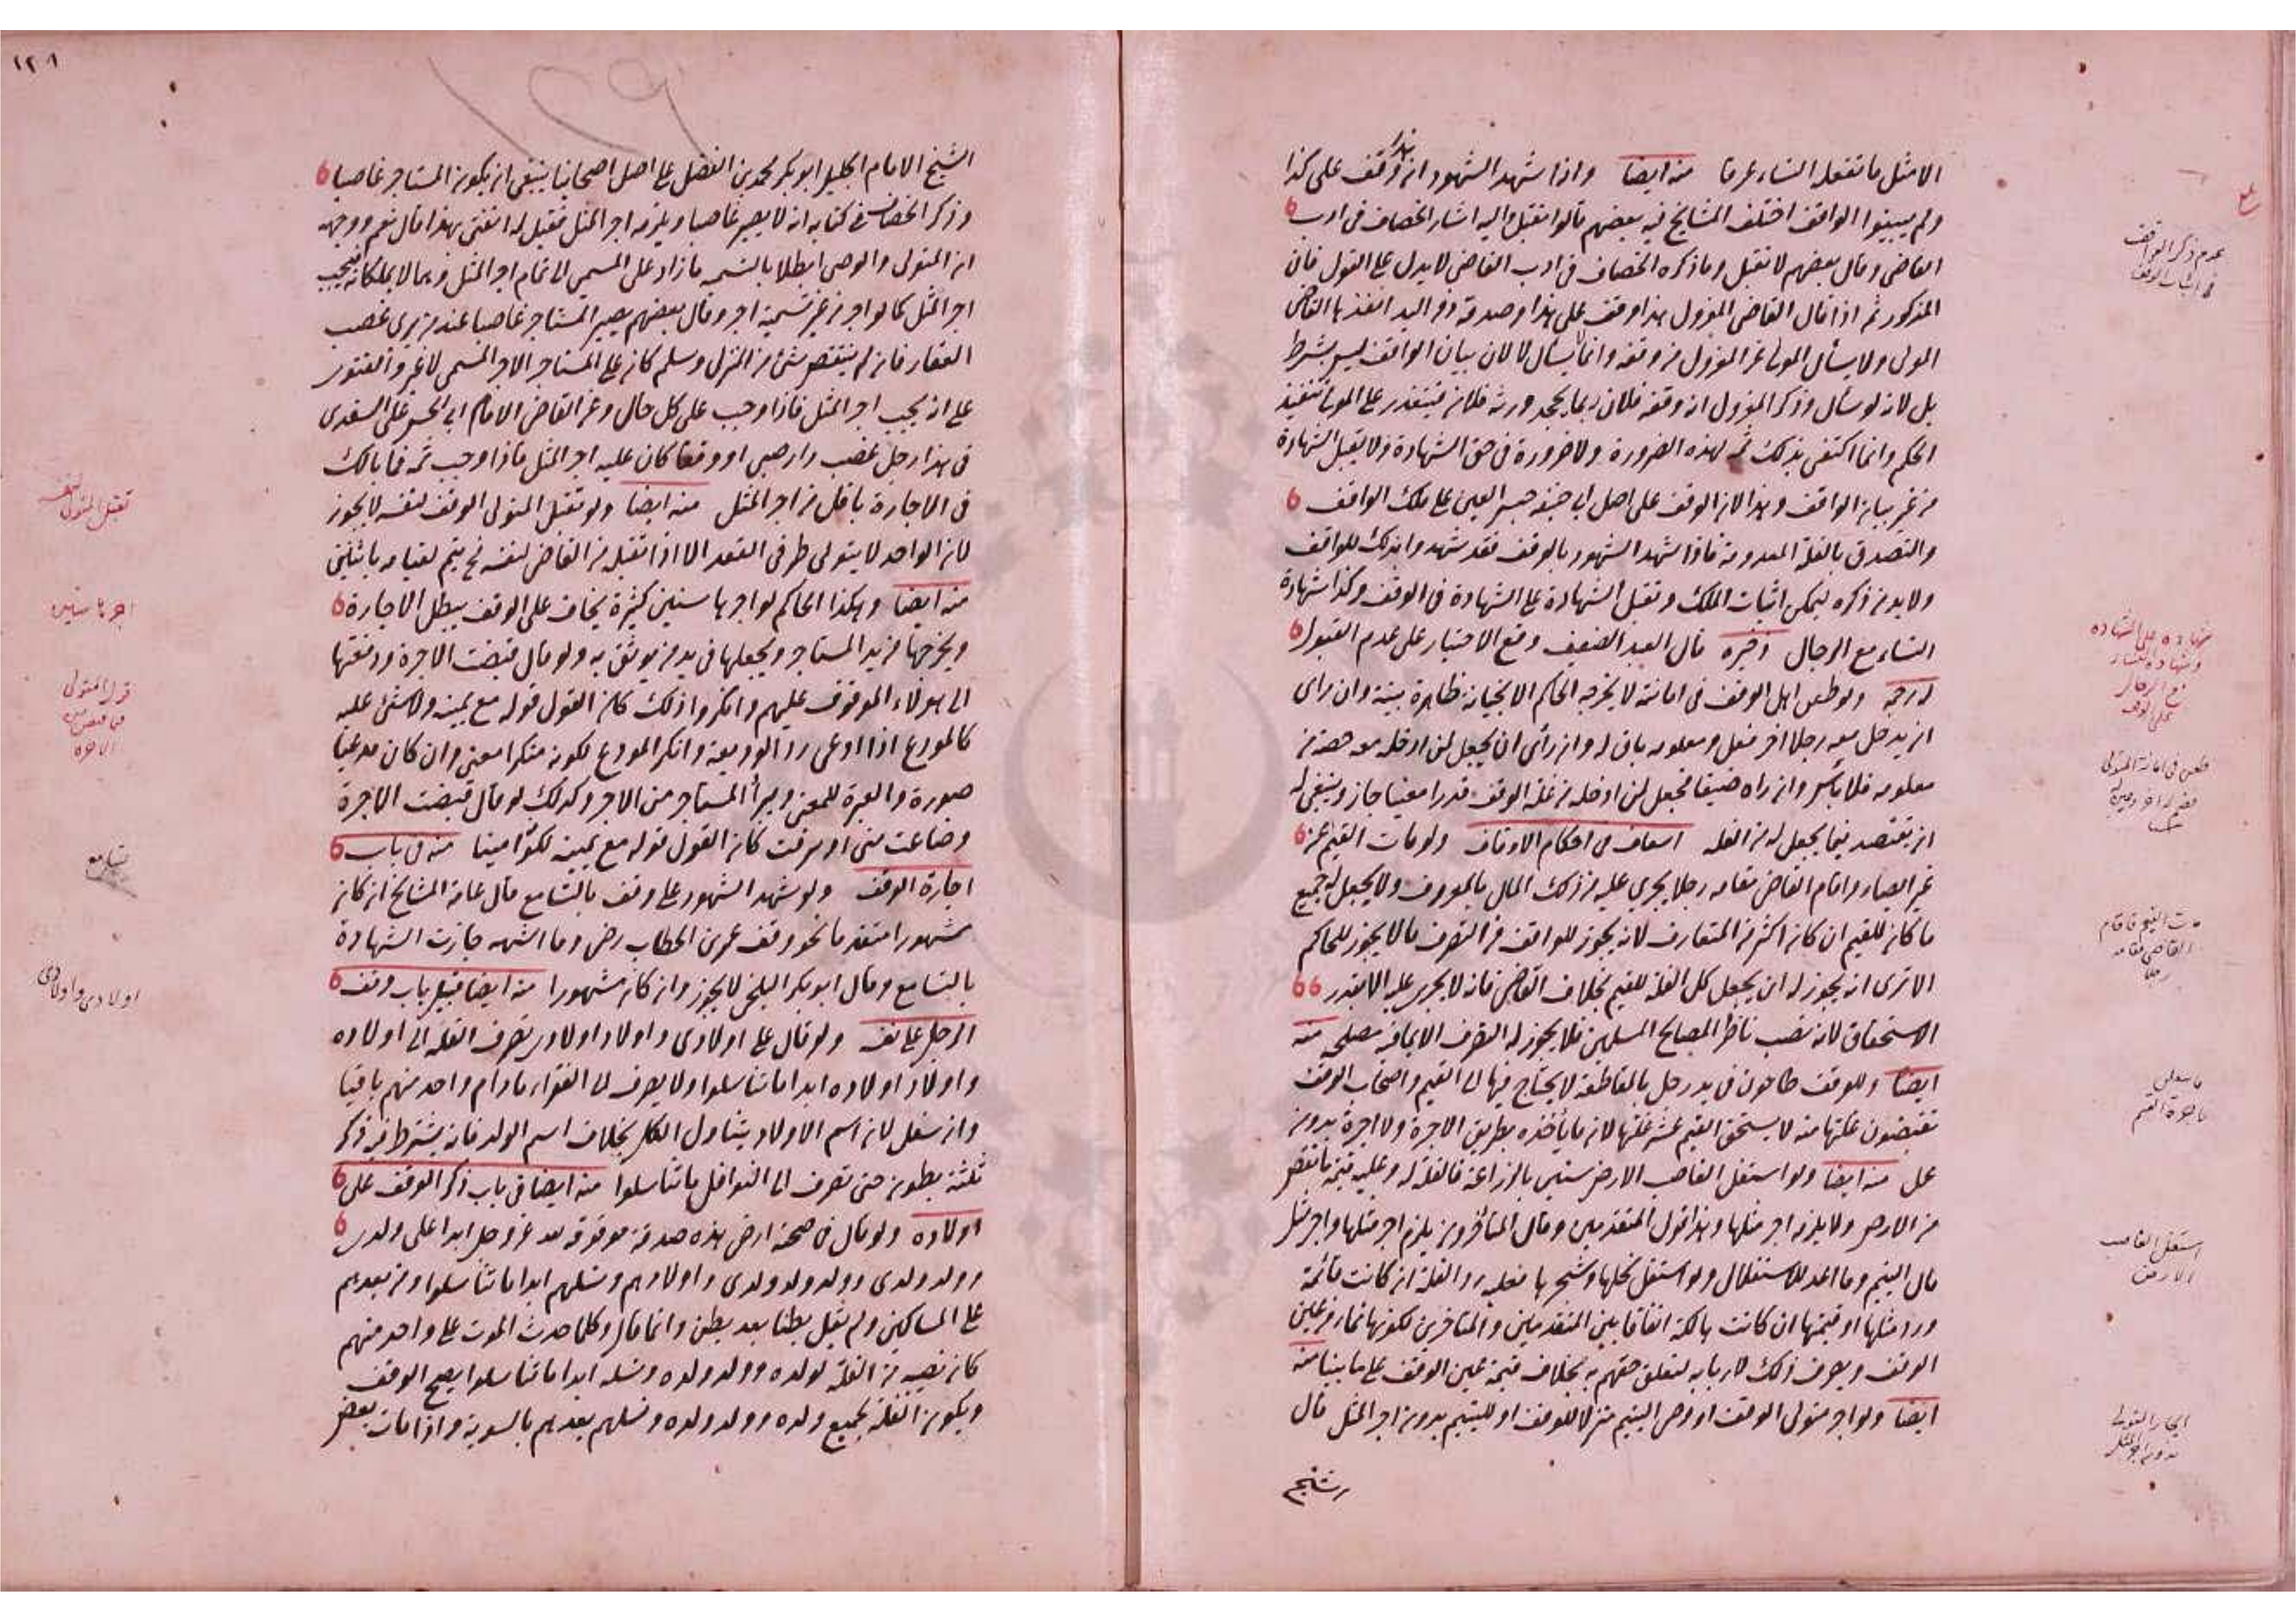 الا مثل ما تفعله النساء عرفا منه ايضا واذا شهد الشهود ان هذا وقف على كذا
ولم يبينوا الواقف اختلف المشايخ فيه بعضهم قالوا تقبل واليه اشار الخصاف فى ادب
القاضى وقال بعضهم لا تقبل وما ذكره الخصاف فى ادب القاضى لا يدل على القبول فان
المذكور ثم اذا قال القاضى المعزول هذا وقف على هذا وصدقه ذو اليد انفذها القاضى
المولى ولا يسأل المولى عن المعزول من وقفه وانما لا يسأل لا لان بيان الواقف ليس بشرط
بل لانه لو سأل وذكر المعزول انه وقفه فلان ربما يجحد ورثة فلان فيتعذر على المولى تنفيذ
الحكم وانما اكتفى بذلك ثم لهذه الضرورة ولا ضرورة فى حق الشهادة ولا يقبل الشهادة
من غير بيان الواقف وهذا لان الوقف على اصل ابى حنيفه حبس العين على ملك الواقف
والتصدق بالغلة المعدومة فاذا شهد الشهود بالوقف فقد شهدوا بذلك للواقف
ولا بد من ذكره ليمكن اثبات الملك وتقبل الشهادة على الشهادة فى الوقف وكذا شهادة
النساء مع الرجال ذخيره قال العبد الضعيف وقع الاختيار على عدم القبول
ولو طعن اهل الوقف فى امانته لا يخرجه الحاكم الا بخيانة ظاهرة بينة وان راى
ان يدخل معه رجلا اخر فعل ومعلومه باق له وان رأى ان يجعل لمن ادخله معه حصة من
معلومه فلا بأس وان راه ضيقا فجعل لمن ادخله من غلة الوقف قدرا معينا جاز وينبغى له
ان يقتصد فيما يجعل له من الغله اسعاف فى احكام الاوقاف ولو مات القيم عن
غير ايصاء واقام القاضى مقامه رجلا يجرى عليه من ذلك المال بالمعروف ولا يجعل له جميع
ما كان للقيم ان كان اكثر من المتعارف لانه يجوز للواقف من التصرف ما لا يجوز للحاكم
الا ترى انه يجوز له ان يجعل كل الغلة للقيم بخلاف القاضى فانه لا يجرى عليه الا بقدر
الاستحقاق لانه نصب ناظرا لمصالح المسلمين فلا يجوز له التصرف الا بما فيه مصلحه منه
ايضا وللوقف طاحون فى يد رجل بالمقاطعة لا يحتاج فيها الى القيم واصحاب الوقف
تقبضون غلتها منه لا يستحق القيم عشر غلتها لان ما يأخذه بطريق الاجرة ولا اجرة بدون
عمل منه ايضا ولو استغل الغاصب الارض سنين بالزراعة فالغلة له وعليه قيمة ما نقص
من الارض ولا يلزمه اجر مثلها وهذا قول المتقدمين وقال المتأخرون يلزم اجر مثلها واجر مثل
مال اليتيم وما اعد للاستغلال ولو استغل نخلها وشجرها فعليه رد الغلة ان كانت قائمة
ورد مثلها او قيمتها ان كانت هالكة اتفاقا بين المتقدمين والمتاخرين لكونها نماء من عين
الوقف ويصرف ذلك لاربابه لتعلق حقهم به بخلاف قيمة عين الوقف على ما بينا منه
ايضا ولو اجر متولى الوقف او وصى اليتيم منزلا للوقف او لليتيم بدون اجر المثل قال
الشيخ
عدم ذكر الواقف
فى اثبات الوقف
شهاده على الشهاده
وشهادة النساء
مع الرجال
على الوقف
طعن فى امانة المتولى
مات القيم فاقام
القاضى مقامه
رجلا
استغل الغاصب
الارض
ايجار المتولى
بدون اجر المثل
١٢٨
١٢٩
الشيخ الامام الجليل ابو بكر محمد بن الفضل على اصل اصحابنا ينبغى ان يكون المستاجر غاصبا
وذكر الخصاف فى كتابه انه لا يصير غاصبا ويلزمه اجر المثل فقيل له اتفتى بهذا قال نعم ووجهه
ان المتولى والوصى ابطلا بالتسمية ما زاد على المسمى الى تمام اجر المثل وهما لا يملكانه فيجب
اجر المثل كما لو اجر من غير تسمية اجر وقال بعضهم يصير المستاجر غاصبا عند من يرى غصب
العقار فان لم ينتقص شئ من المنزل وسلم كان على المستاجر الاجر المسمى لا غير والفتوى
على انه يجب اجر المثل فاذا وجب على كل حال وعن القاضى الامام ابى الحسن على السغدى
فى هذا رجل غصب دار صبى او وقفا كان عليه اجر المثل فاذا وجب ثمه فما بالك
فى الاجارة باقل من اجر المثل منه ايضا ولو تقبل المتولى الوقف لنفسه لا يجوز
لان الواحد لا يتولى طرفى العقد الا اذا تقبله من القاضى لنفسه فح يتم لقيامه باثنين
منه ايضا وهكذا الحاكم لو اجرها سنين كثيرة يخاف على الوقف يبطل الاجارة
ويخرجها من يد المستاجر ويجعلها فى يد من يوثق به ولو قال قبضت الاجرة ودفعتها
الى هولاء الموقوف عليهم وانكروا ذلك كان القول قوله مع يمينه ولا شئ عليه
كالمودع اذا ادعى رد الوديعة وانكر المودع لكونه منكرا معنى وان كان مدعيا
صورة والعبرة للمعنى ويبرأ المستاجر من الاجر وكذلك لو قال قبضت الاجرة
وضاعت منى او سرقت كان القول قوله مع يمينه لكونه امينا منه فى باب
اجارة الوقف ولو شهد الشهود على وقف بالتسامع قال عامة المشايخ ان كان
مشهورا متقدما نحو وقف عمر بن الخطاب رضى وما اشبهه جازت الشهادة
بالتسامع وقال ابو بكر البلخى لا يجوز وان كان مشهورا منه ايضا قبيل باب وقف
الرجل على نفسه ولو قال على اولادى واولاد اولادى يصرف الغلة الى اولاده
واولاد اولاده ابدا ما تناسلوا ولا يصرف الى الفقراء ما دام واحد منهم باقيا
وان سفل لان اسم الاولاد يتناول الكل بخلاف اسم الولد فانه يشترط فيه ذكر
ثلثة بطون حتى تصرف الى النوافل ما تناسلوا منه ايضا فى باب ذكر الوقف على
اولاده ولو قال فى صحته ارضى هذه صدقة موقوفة لله عز وجل ابدا على ولدى
وولد ولدى وولد ولد ولدى واولادهم ونسلهم ابدا ما تناسلوا ومن بعدهم
على المساكين ولم يقل بطنا بعد بطن وانما قال وكلما حدث الموت على واحد منهم
كان نصيبه من الغلة لولده وولد ولده ونسله ابدا ما تناسلوا يصح الوقف
ويكون الغلة لجميع ولده وولد ولده ونسلهم بعدهم بالسوية واذا مات بعض
تقبل المتولى لنفسه
اجرها سنين
قول المتولى
فى قبض
الاجرة
تسامع
اولادى واولاد